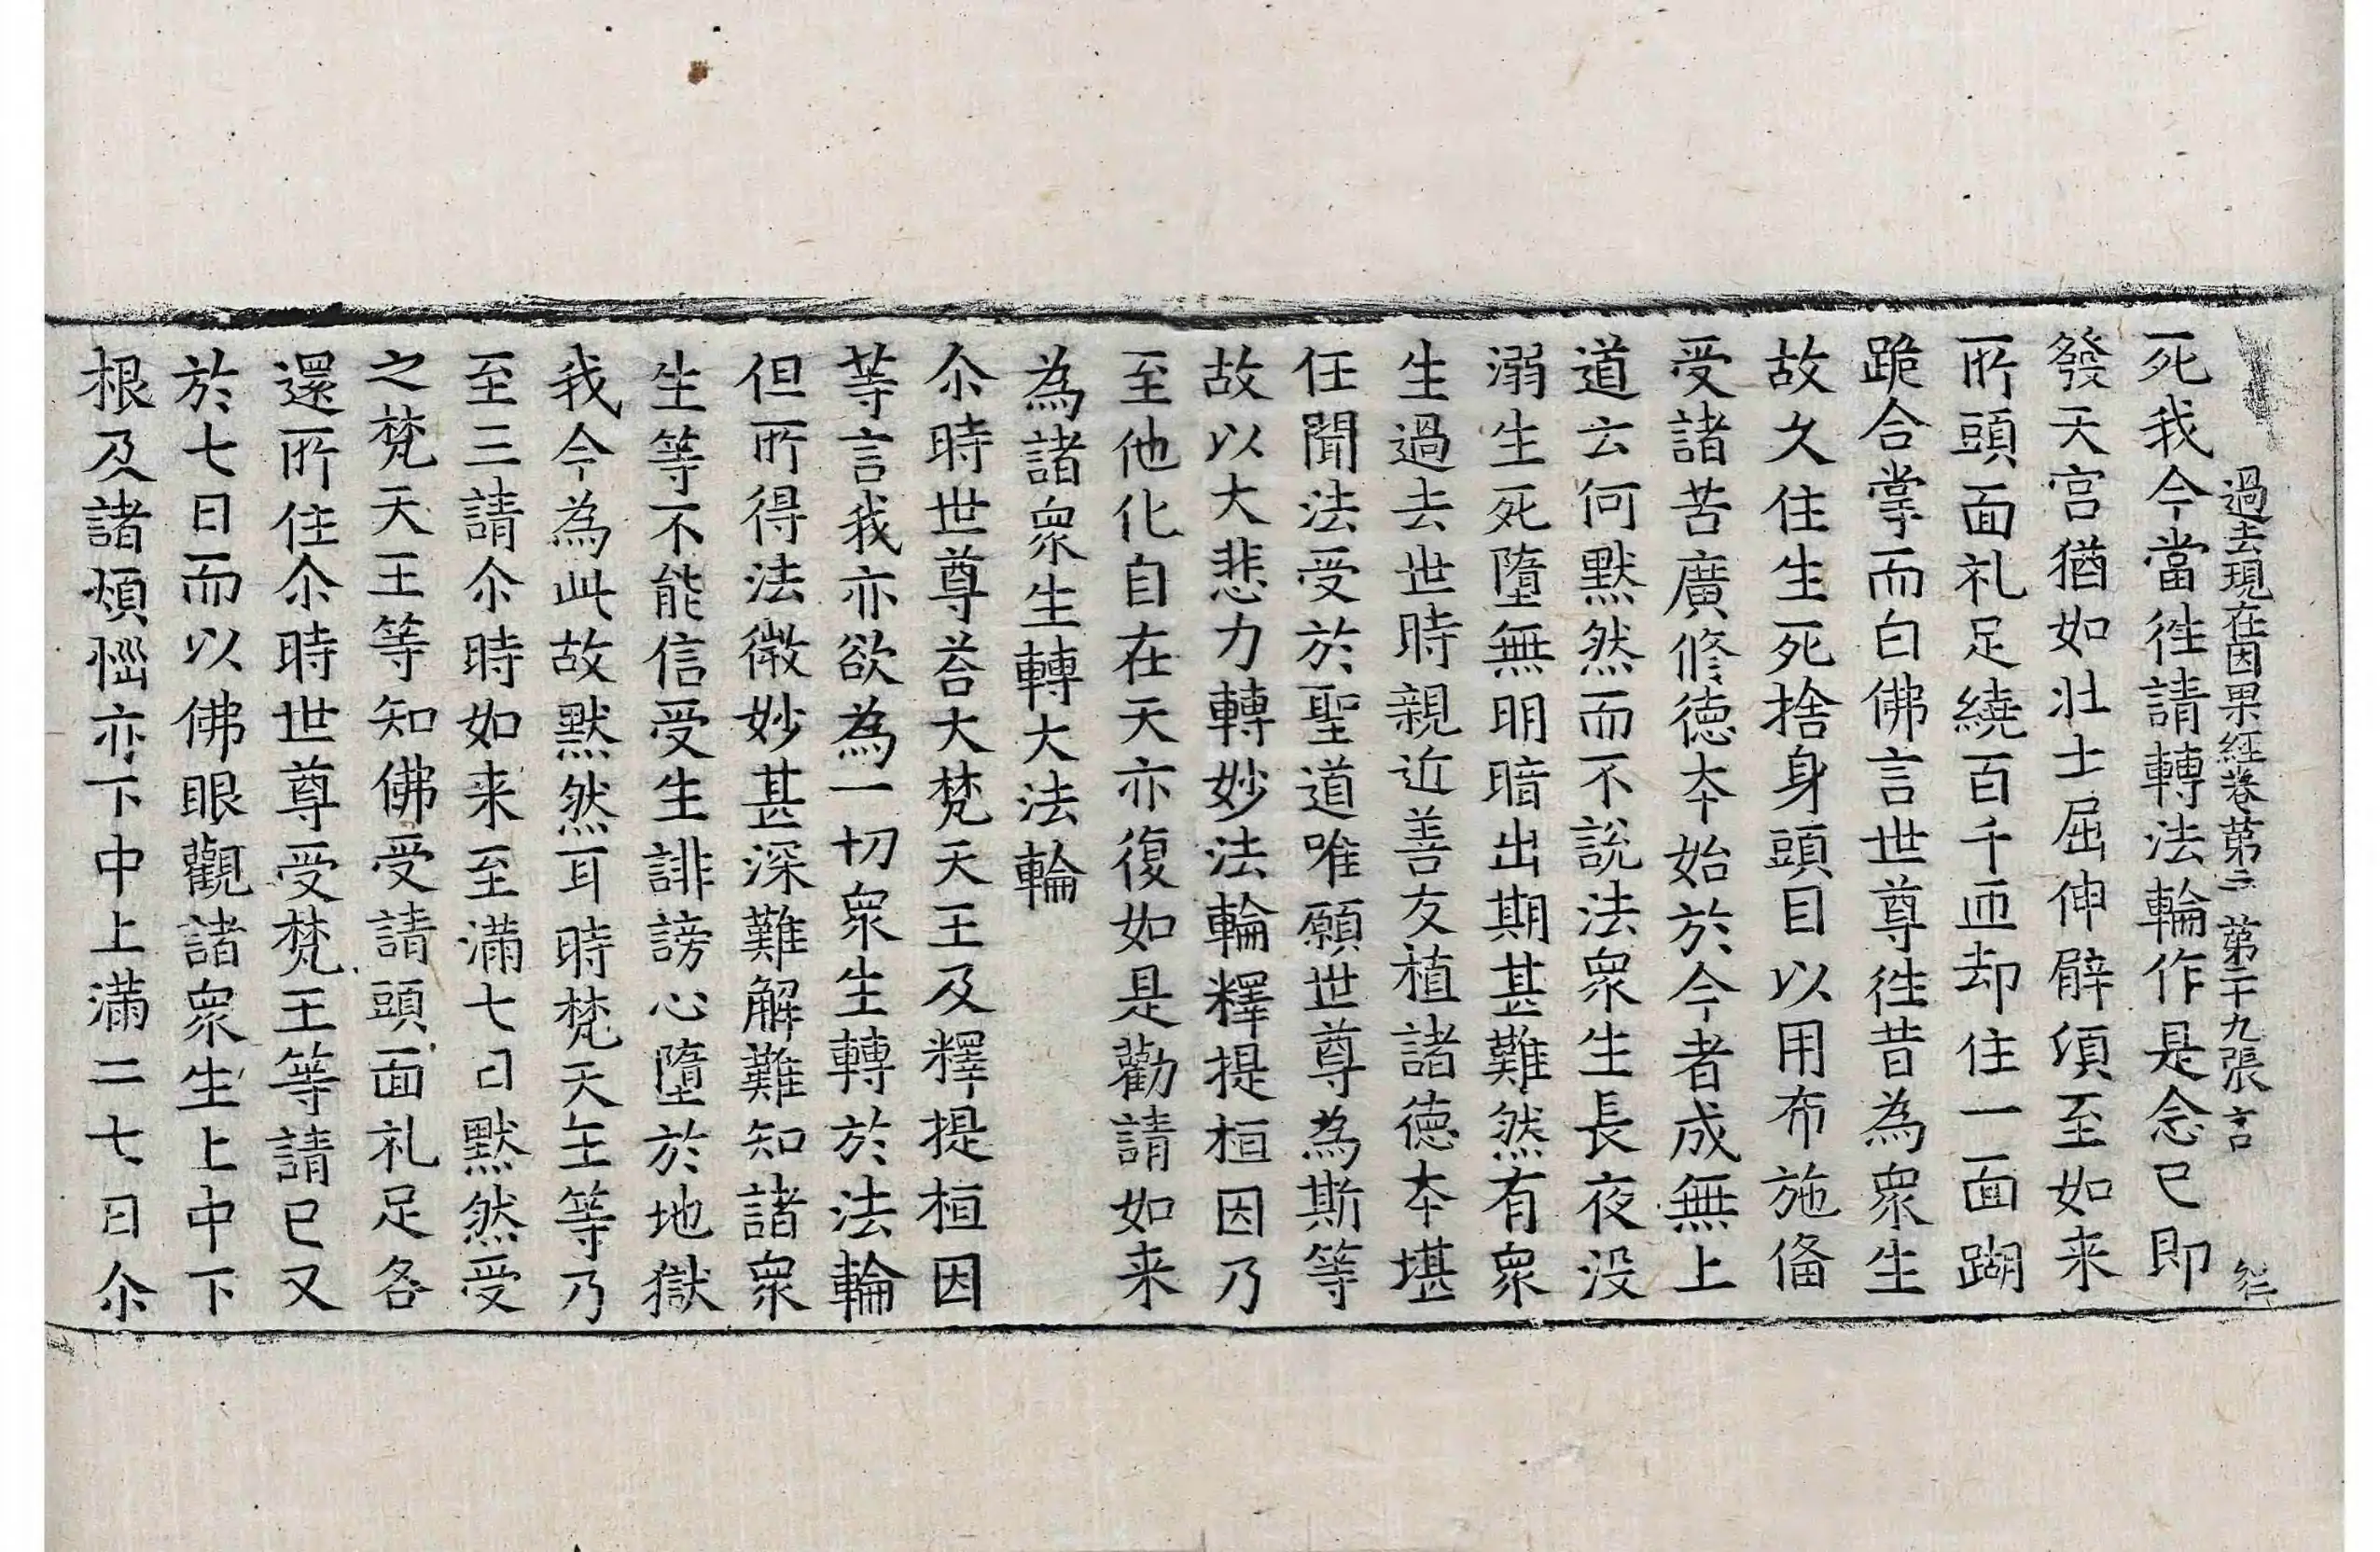 過去現在因果經卷第三 第二十九張 言
死我今當徃請轉法輪作是念已即
發天宮猶如壯士屈伸臂湏至如来
所頭面礼足繞百千匝却住一面蹋
跪合掌而白佛言世尊徃昔為衆生
故久住生死捨身頭目以用布施俻
受諸苦廣修徳夲始於今者成無上
道云何黙然而不說法衆生長夜没
溺生死墮無明暗出期甚難然有衆
生過去世時親近善友植諸徳夲堪
任聞法受於聖道唯願世尊為斯等
故以大悲力轉妙法輪釋提桓因乃
至他化自在天亦復如是勸請如来
為諸衆生轉大法輪
尒時世尊荅大梵天王及釋提桓因
等言我亦欲為一切衆生轉於法輪
但所得法微妙甚深難解難知諸衆
生等不能信受生誹謗心墮於地獄
我今為此故黙然耳時梵天王等乃
至三請尒時如来至滿七日黙然受
之梵天王等知佛受請頭面礼足各
還所住尒時世尊受梵王等請已又
於七日而以佛眼觀諸衆生上中下
根及諸煩惱亦下中上滿二七日尒